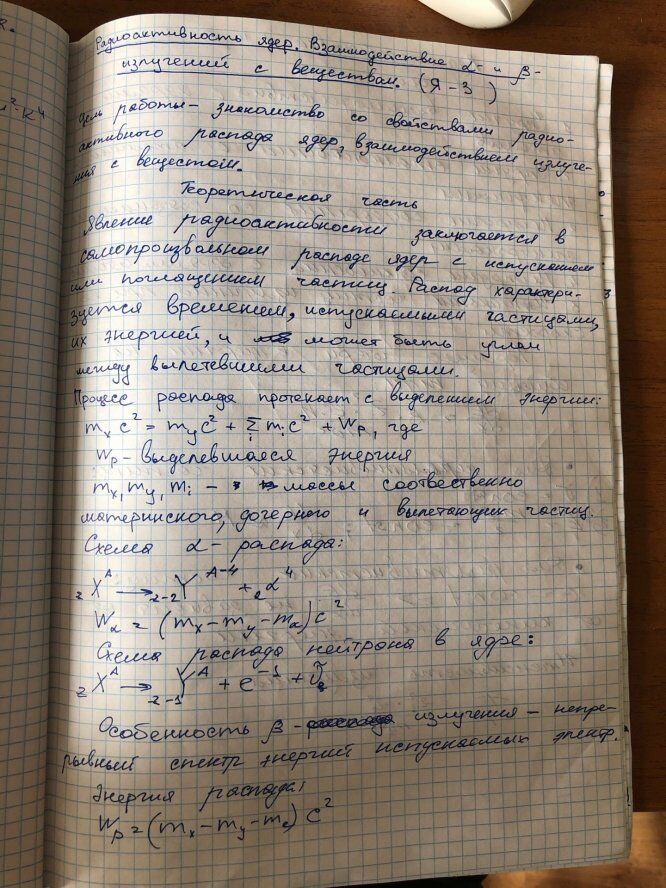 Радиоактивность ядер. Взаимодействие α- и β-
излучений с веществам. (Я-3)
Цель работы - знакомство со свойствами радио-
активного распада ядер, взаимодействием излуче-
ния с веществом.
Теоретическая часть
Явление радиоактивности заключается в
самопроизвольном распаде ядер с испусканием
или поглащением частиц. Распад характери-
зуется временем, испускаемыми частицами,
их энергией, и может быть углам
между вылетевшими частицами.
Процесс распада протекает с выделением энергии:
mₓc² = m_yc² + Σ_i m_ic² + W_p, где
W_p - выделевшаеся энергия
mₓ, m_y, m_i - массы соотвественно
материнского, дочернего и вылетающих частиц.
Схема α-распада:
_zX^A → _{z-2}Y^{A-4} + ₂α⁴
W_α = (mₓ - m_y - m_α)c²
Схема распада нейтрона в ядре:
_zX^A → _{z-1}Y^A + e^{-1} + ν̃_e
Особенность β- излучения - непре-
рывный спектр энергий испускаемых электр.
Энергия распада:
W_β = (mₓ - m_y - m_e)c²